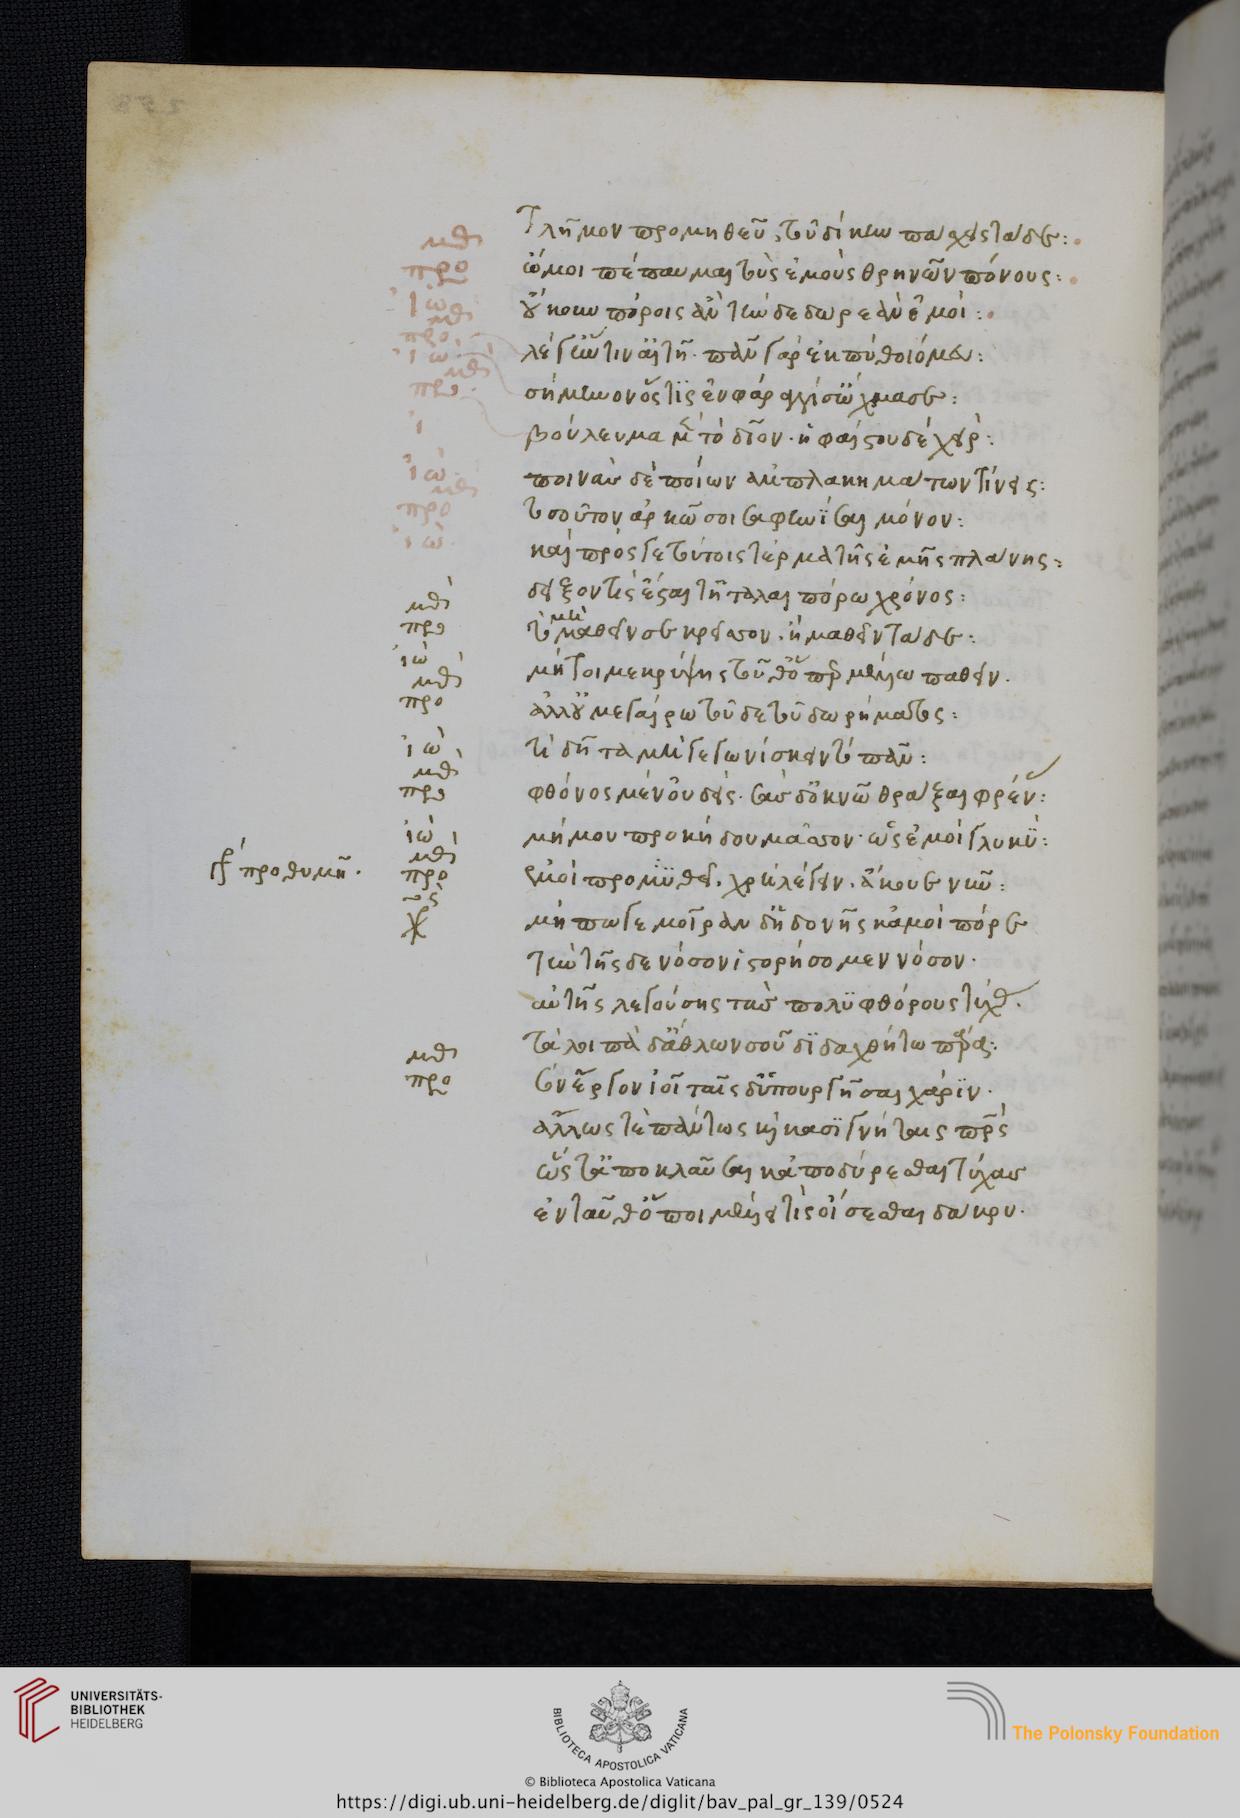 Τλῆμον προμηθεῦ, τοῦ δίκην πάσχεις τάδε:
ὤμοι πέπαυμαι τοὺς ἐμοὺς θρηνῶν πόνους:
οὔκουν πόροις ἂν τήνδε δωρεὰν ἐμοί:
λέγ' ἣν τιν' αἰτῇ. πᾶν γὰρ ἐκπύθοιό μου:
σήμηνον ὅστις ἐν φάραγγί σ' ὤχμασε:
βούλευμα μὲν τὸ δῖον. ἡφαίστου δὲ χείρ:
ποινὰς δὲ ποίων ἀμπλακημάτων τίνεις:
τοσοῦτον ἀρκῶ σοι σαφηνίσαι μόνον:
καὶ πρός γε τούτοις τέρμα τῆς ἐμῆς πλάνης:
δεῖξον τίς ἔσται τῇ ταλαιπώρω χρόνος:
τὸ μὴ μαθεῖν σοι κρεῖσσον. ἢ μαθεῖν τάδε:
μήτοι με κρύψης τοῦθ' ὅπερ μέλλω παθεῖν.
ἀλλ' οὐ μεγαίρω τοῦδε τοῦ δωρήματος:
τί δῆτα μέλλεις γεγωνίσκειν τὸ πᾶν:
φθόνος μὲν οὐδείς. σὰς δ' ὀκνῶ θράξαι φρένας:
μή μου προκήδου μᾶσσον. ὡς ἐμοὶ γλυκύ:
γρ προθυμῇ.
μήπω γε μοῖραν δ' ἡδονῆς κἀμοὶ πόρε
τὴν τῆσδε νόσον ἱστορήσομεν νόσον.
αὐτῆς λεγούσης τὰς πολυφθόρους τύχας.
τὰ λοιπὰ δ' ἄθλων σοῦ διδαχθήτω πάρα:
σὸν ἔργον ἰοῖ ταῖς δ' ὑπουργῆσαι χάριν.
ἄλλως τε πάντως καὶ κασιγνήταις πατρός
ὡς τἀποκλαῦσαι κἀποδύρεσθαι τύχας
ἐνταῦθ' ὅποι μέλλει τις οἴσεσθαι δάκρυ.
UNIVERSITÄTS-
BIBLIOTHEK
HEIDELBERG
BIBLIOTECA APOSTOLICA VATICANA
The Polonsky Foundation
© Biblioteca Apostolica Vaticana
https://digi.ub.uni-heidelberg.de/diglit/bav_pal_gr_139/0524